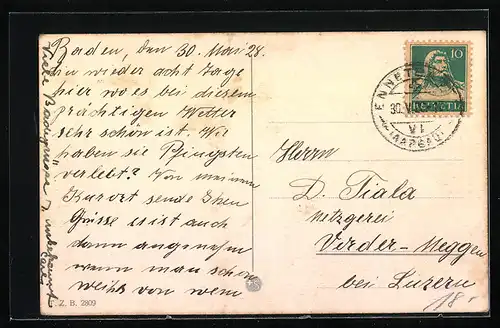 Baden, den 30. Mai 28.
bin wieder acht Tage
hier wo es bei diesem
prächtigen Wetter
sehr schön ist. Wie
haben sie Pfingsten
verlebt? Von meinem
Kurort sende Ihnen
Grüsse es ist auch
dann angenehm
wenn man schon
weiss von wem
Viele
Z. B. 2809
10
HELVETIA
ENNETB
30. V
VI
(AARGAU)
Herrn
D. Tiala
Metzgerei
Vorder-Meggen
bei Luzern
18.-